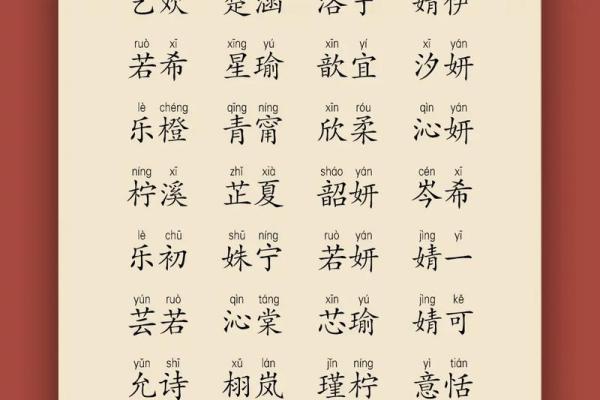 艺欢 楚涵 洛 婧伊
ruò xī xīng yú xīn yí xī yán
若希 星瑜 歆宜 汐妍
lè chéng qīng níng xīn róu qìn yán
乐橙 青甯 欣柔 沁妍
níng xī zhǐ xià sháo yán cén xī
柠溪 芷夏 韶妍 岑希
lè chū shū níng ruò yán jìng yī
乐初 姝宁 若妍 婧一
yún ruò qìn táng xīn yú jìng kě
芸若 沁棠 芯瑜 婧可
yǔn shī xǔ lán jǐn níng yì tián
允诗 栩岚 瑾柠 意恬